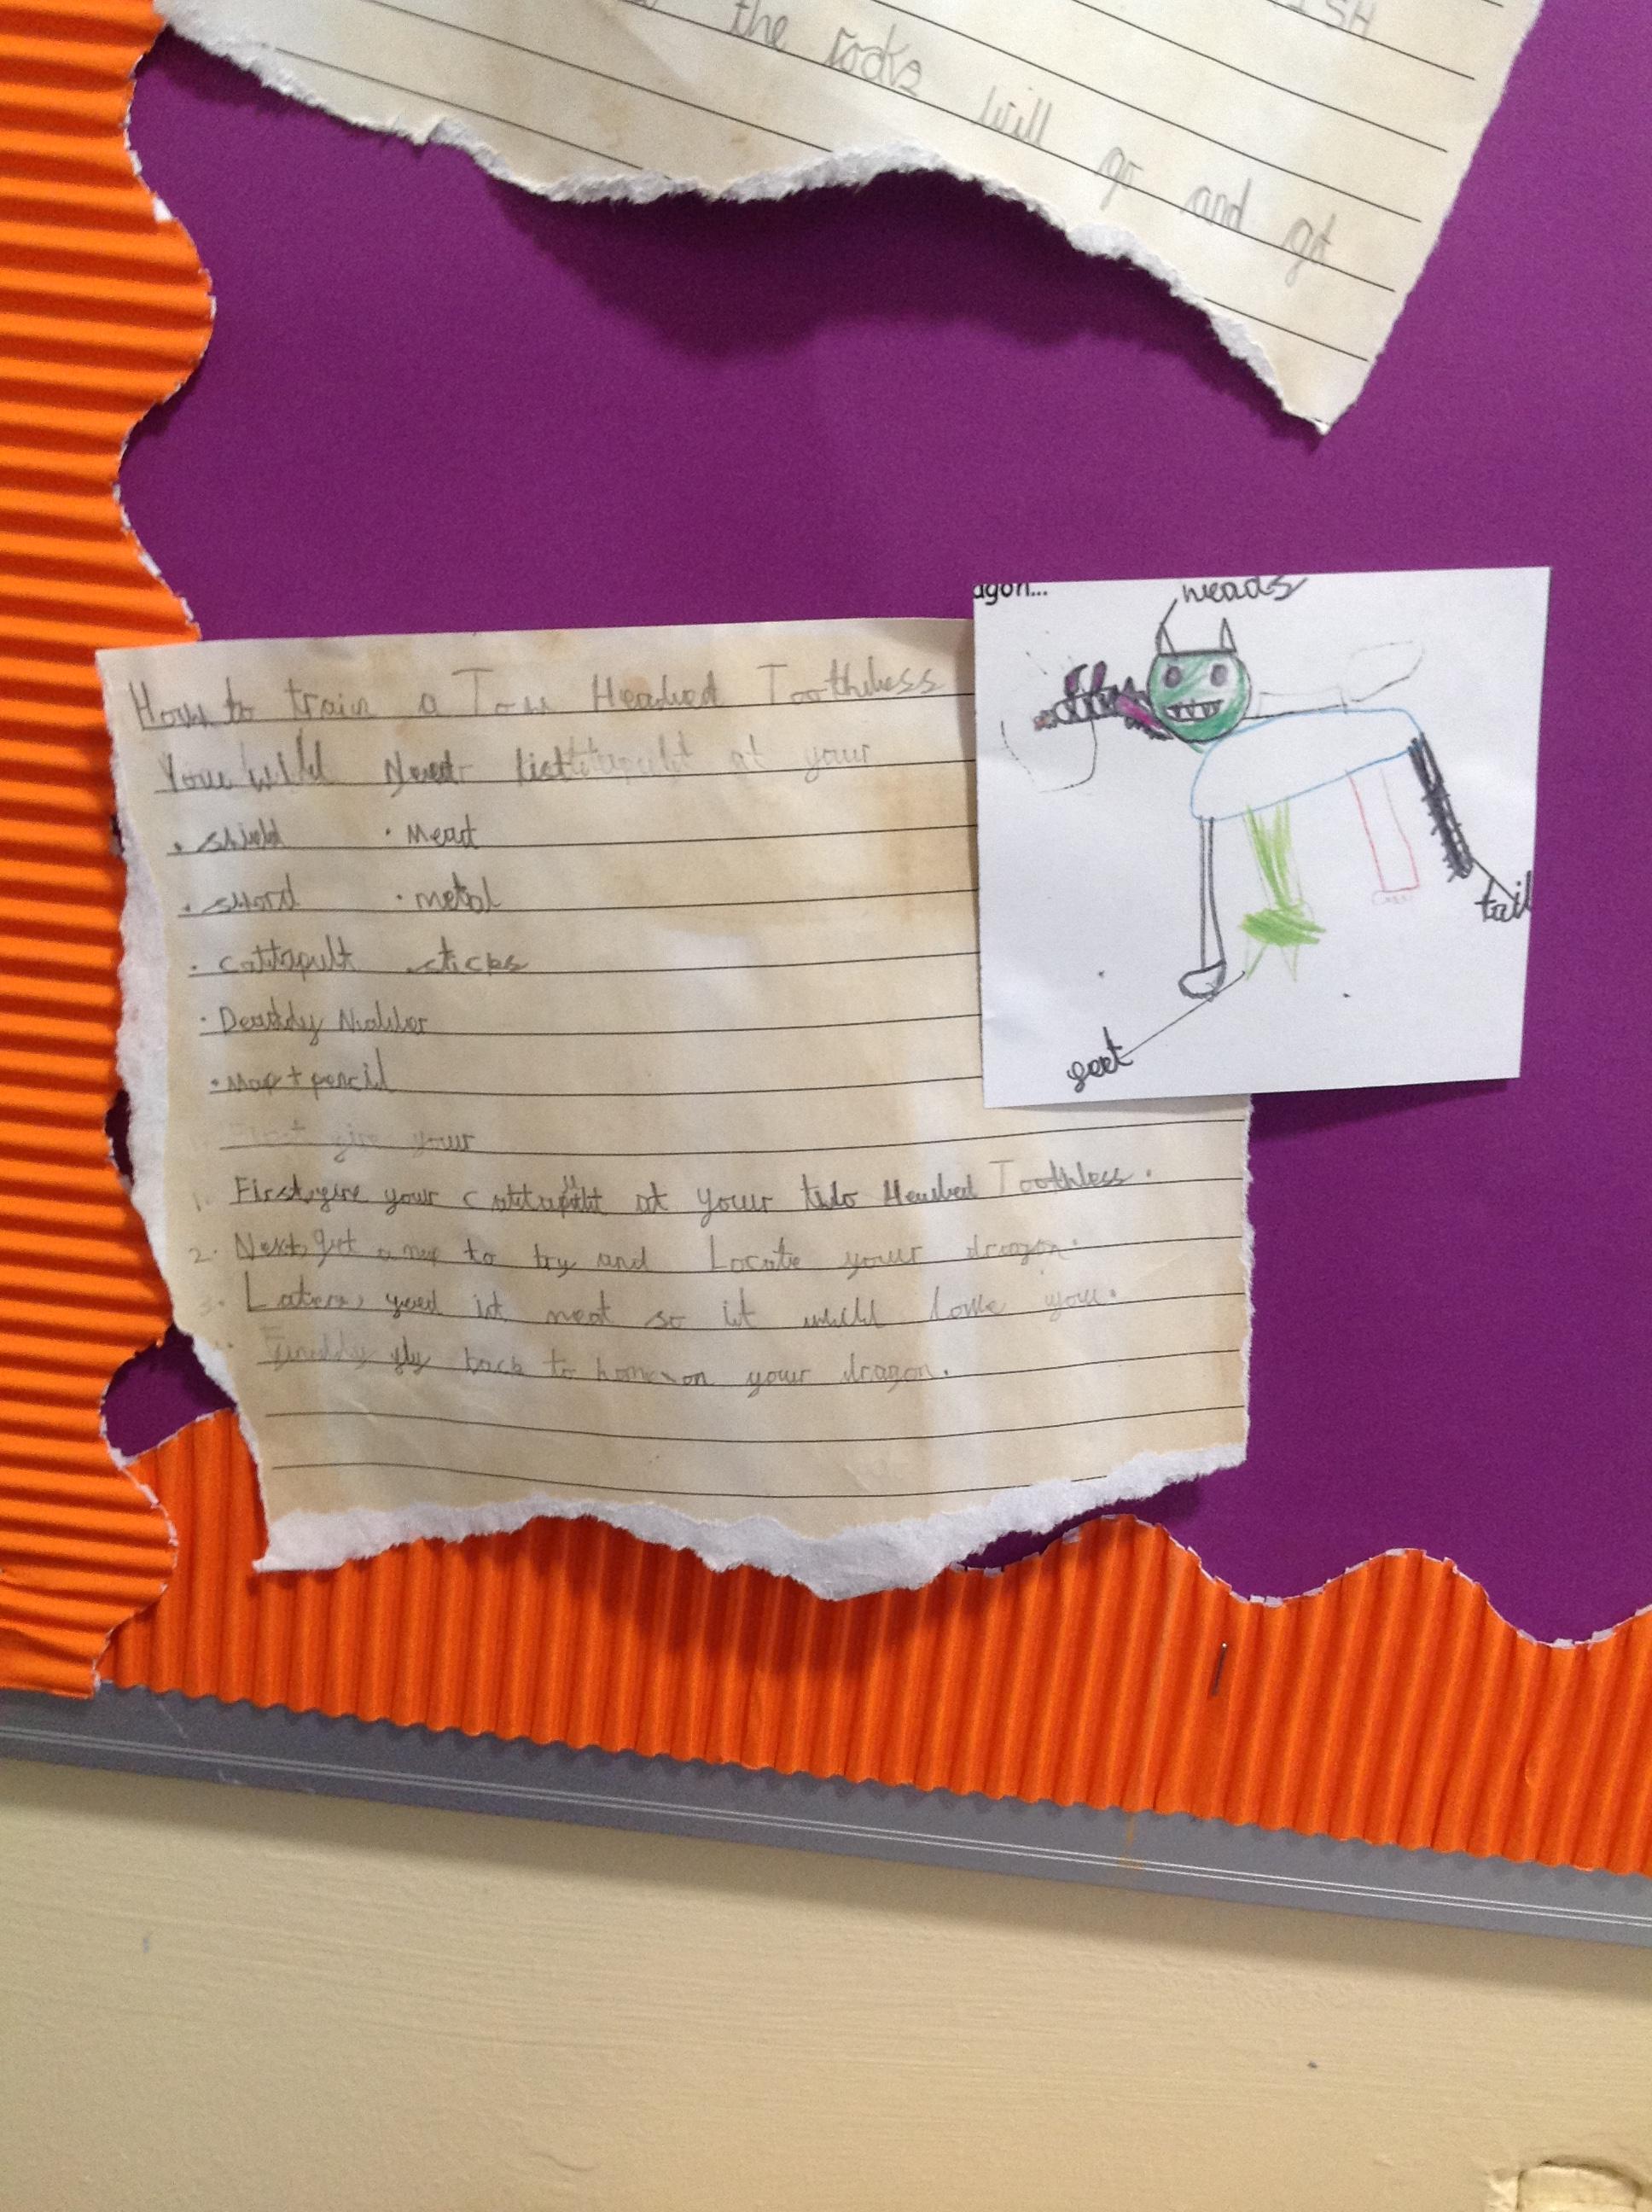 ISH
the rocks will go and get
agon...
heads
tail
geet
How to train a Tow Headed Toothless
You will Need list at your
• shield • Meat
• sword • metal
• cattapult • sticks
• Deaddy Nadder
• Map + pencil
First give your
1. First, give your cattapult at your two Headed Toothless.
2. Next, get a map to try and Locate your dragon.
3. Later, geed it meat so it will love you.
Finally gly back to home on your dragon.